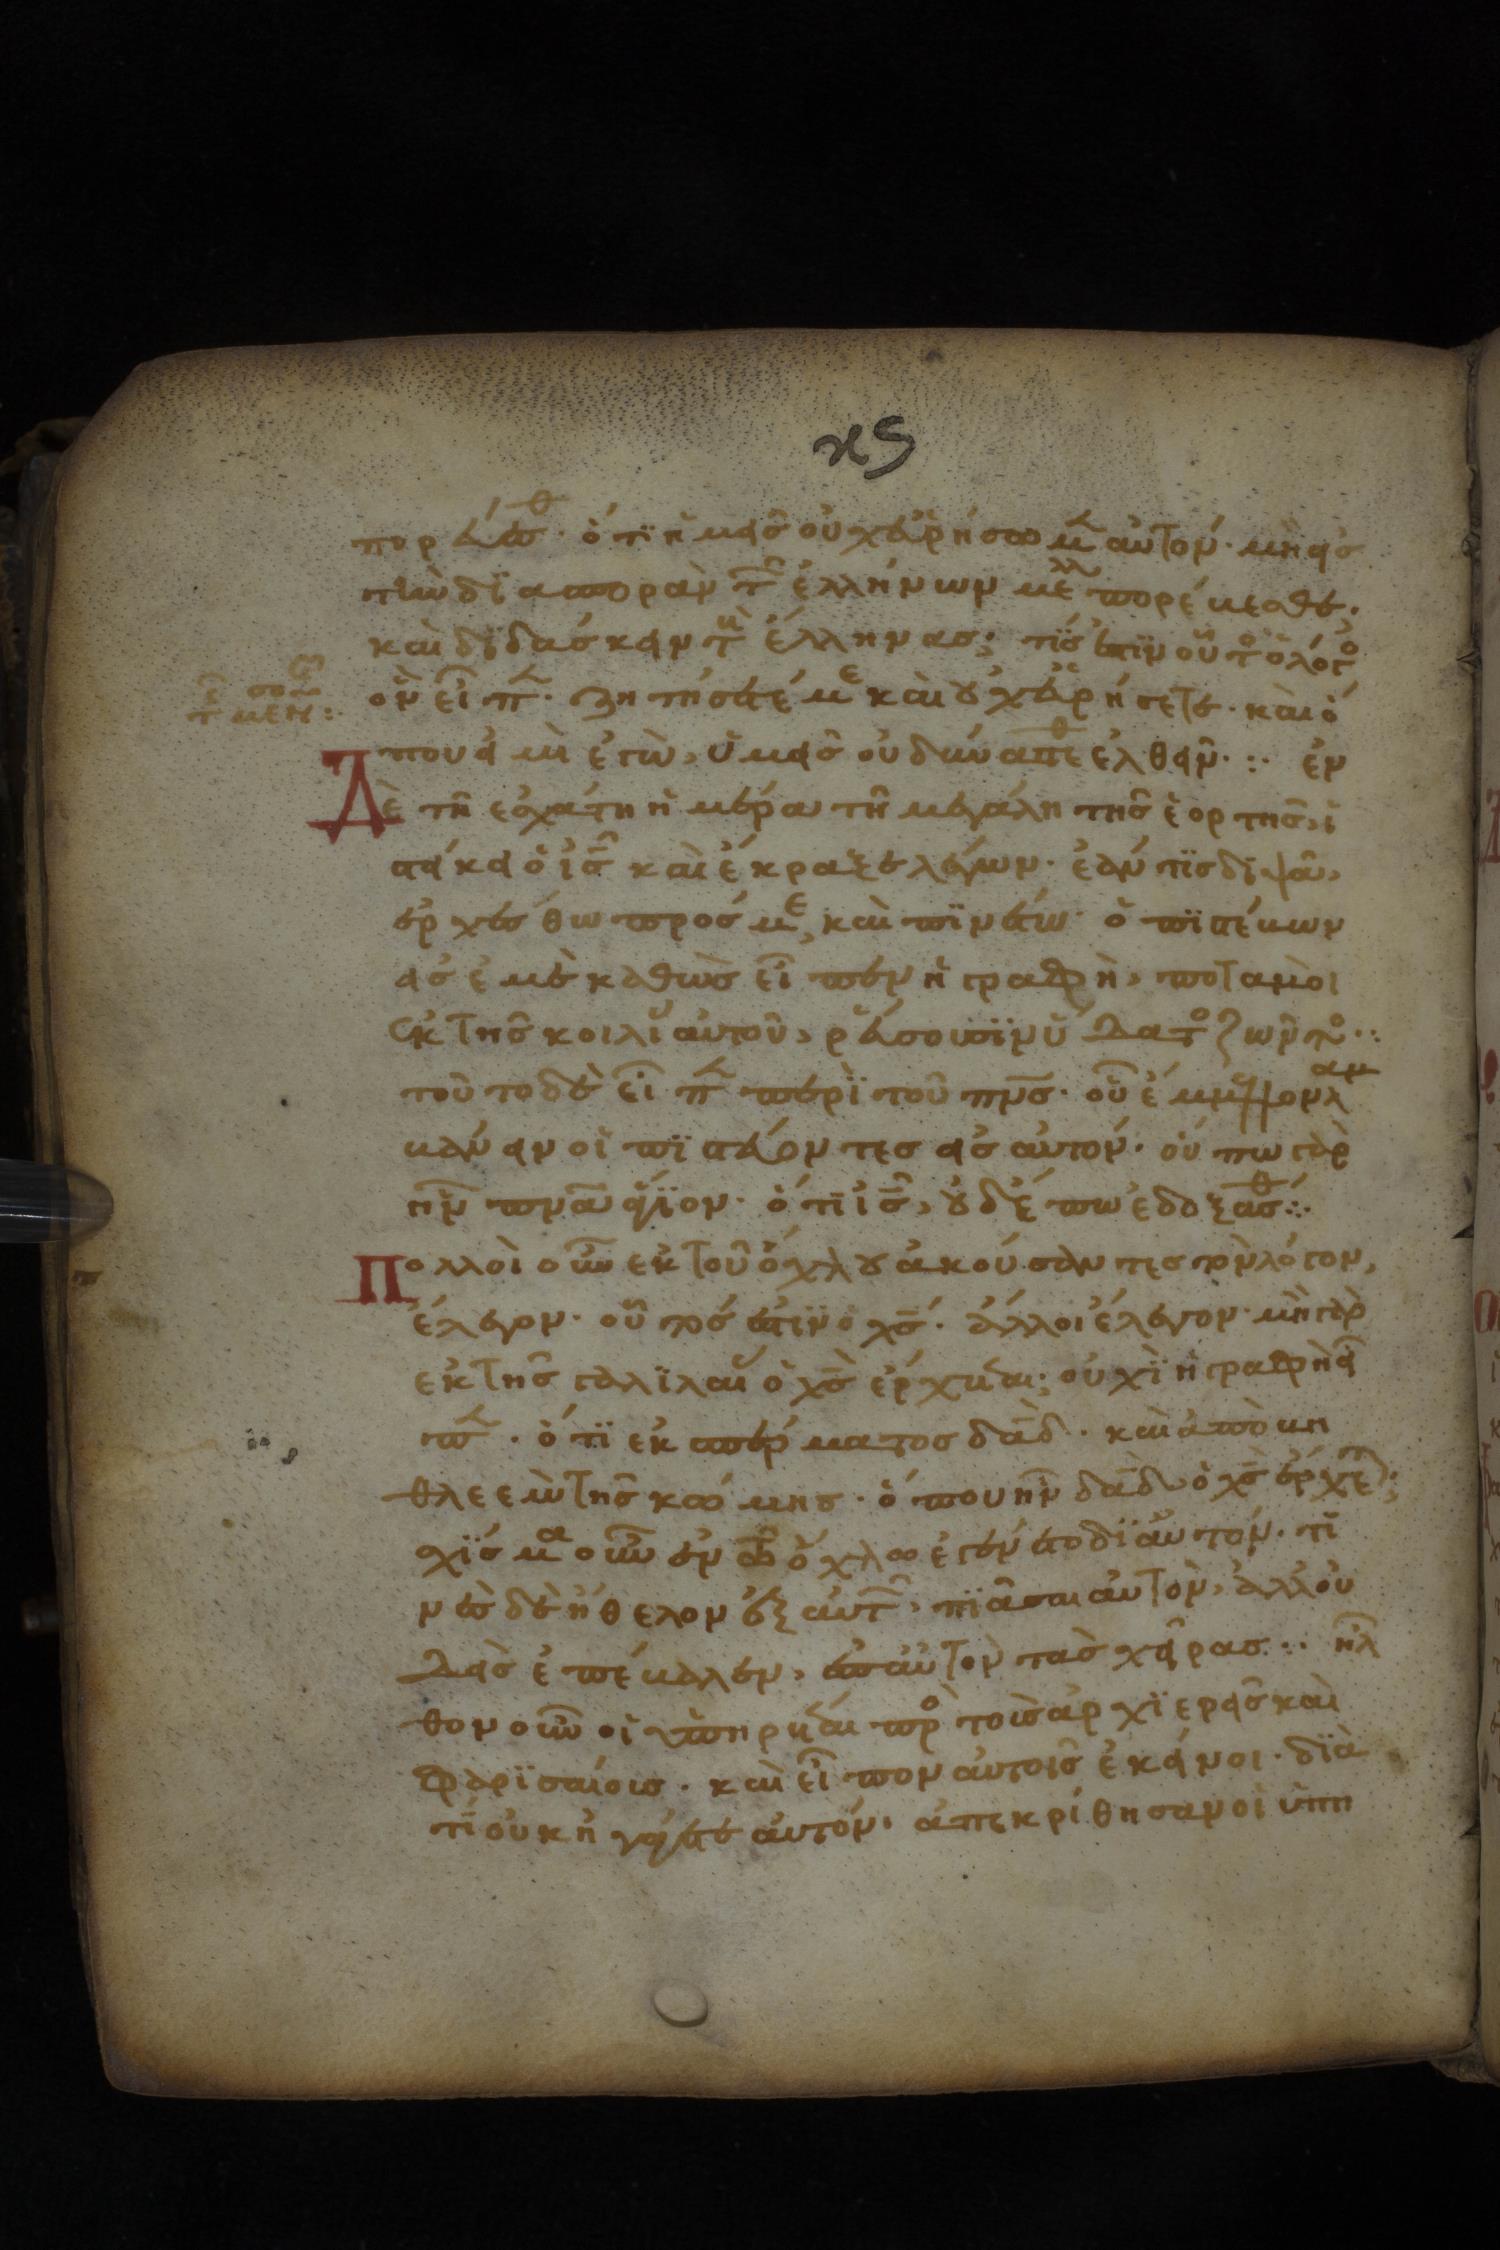 κς
πορεύεσθ· ὅτι ἡμεῖς οὐχ εὑρήσωμ αὐτόν· μὴ εἰς
τὴν διασπορὰν τ ἑλλήνων μελλ πορέυεσθε·
καὶ διδάσκειν τ ἕλληνας; τίς ἐστιν οὗτο ὁ λόγο
ὃν εἶπ· ζητήσετέ με καὶ οὐχ εὑρήσετε· καὶ ὅ
που εἰμὶ ἐγὼ, ὑμεῖς οὐ δύνασθε ἐλθεῖν· :· ἐν
Δὲ τῆ ἐσχάτη ἡμέρα τῆ μεγάλη τῆς ἑορτῆς, εἱ
στήκει ὁ ις καὶ ἔκραξε λέγων· ἐάν τις διψᾶ,
ἐρχέσθω πρός με, καὶ πινέτω· ὁ πιστέυων
εἰς ἐμὲ καθὼς εἶπεν ἡ γραφὴ, ποταμοὶ
ἐκ τῆς κοιλί αὐτοῦ, ρεύσουσιν ὕδατο ζῶντο :·
τοῦτο δὲ εἶπ περὶ τοῦ πνς· οὗ ἔμελλον λαμ
βάνειν οἱ πιστέυοντες εἰς αὐτόν· οὔπω γὰρ
ἦν πνα ἅγιον· ὅτι ις, οὐδέπω ἐδοξάσθ :·
Πολλοὶ οὖν ἐκ τοῦ ὄχλου ἀκούσαντες τὸν λόγον,
ἔλεγον· οὗτός ἐστιν ὁ χς· ἄλλοι ἔλεγον· μὴ γὰρ
ἐκ τῆς γαλιλαί ὁ χς ἔρχεται; οὐχὶ ἡ γραφὴ εἶ
π· ὅτι ἐκ σπέρματος δαδ· καὶ ἀπὸ βη
θλεὲμ τῆς κώμης· ὅπου ἦν δαδ ὁ χς ἔρχετ;
χίσμα οὖν ἐν τῶ ὄχλω ἐγένετο δι αὐτόν· τι
νὲς δὲ ἤθελον ἐξ αὐτ, πιᾶσαι αὐτὸν, ἀλλ οὐ
δεὶς ἐπέβαλεν, ἐπ αὐτὸν τὰς χεῖρας :· ἦλ
θον οὖν οἱ ὑπηρέται πρὸ τοὺς ἀρχιερεῖς καὶ
φαρισαίοις· καὶ εἶπον αὐτοῖς ἐκεῖνοι· διὰ
τί οὐκ ἠγάγετε αὐτόν· ἀπεκρίθησαν οἱ ὑπη